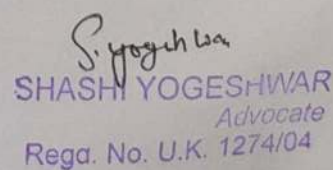 S. Yogeshwar
SHASHI YOGESHWAR
Advocate
Regd. No. U.K. 1274/04